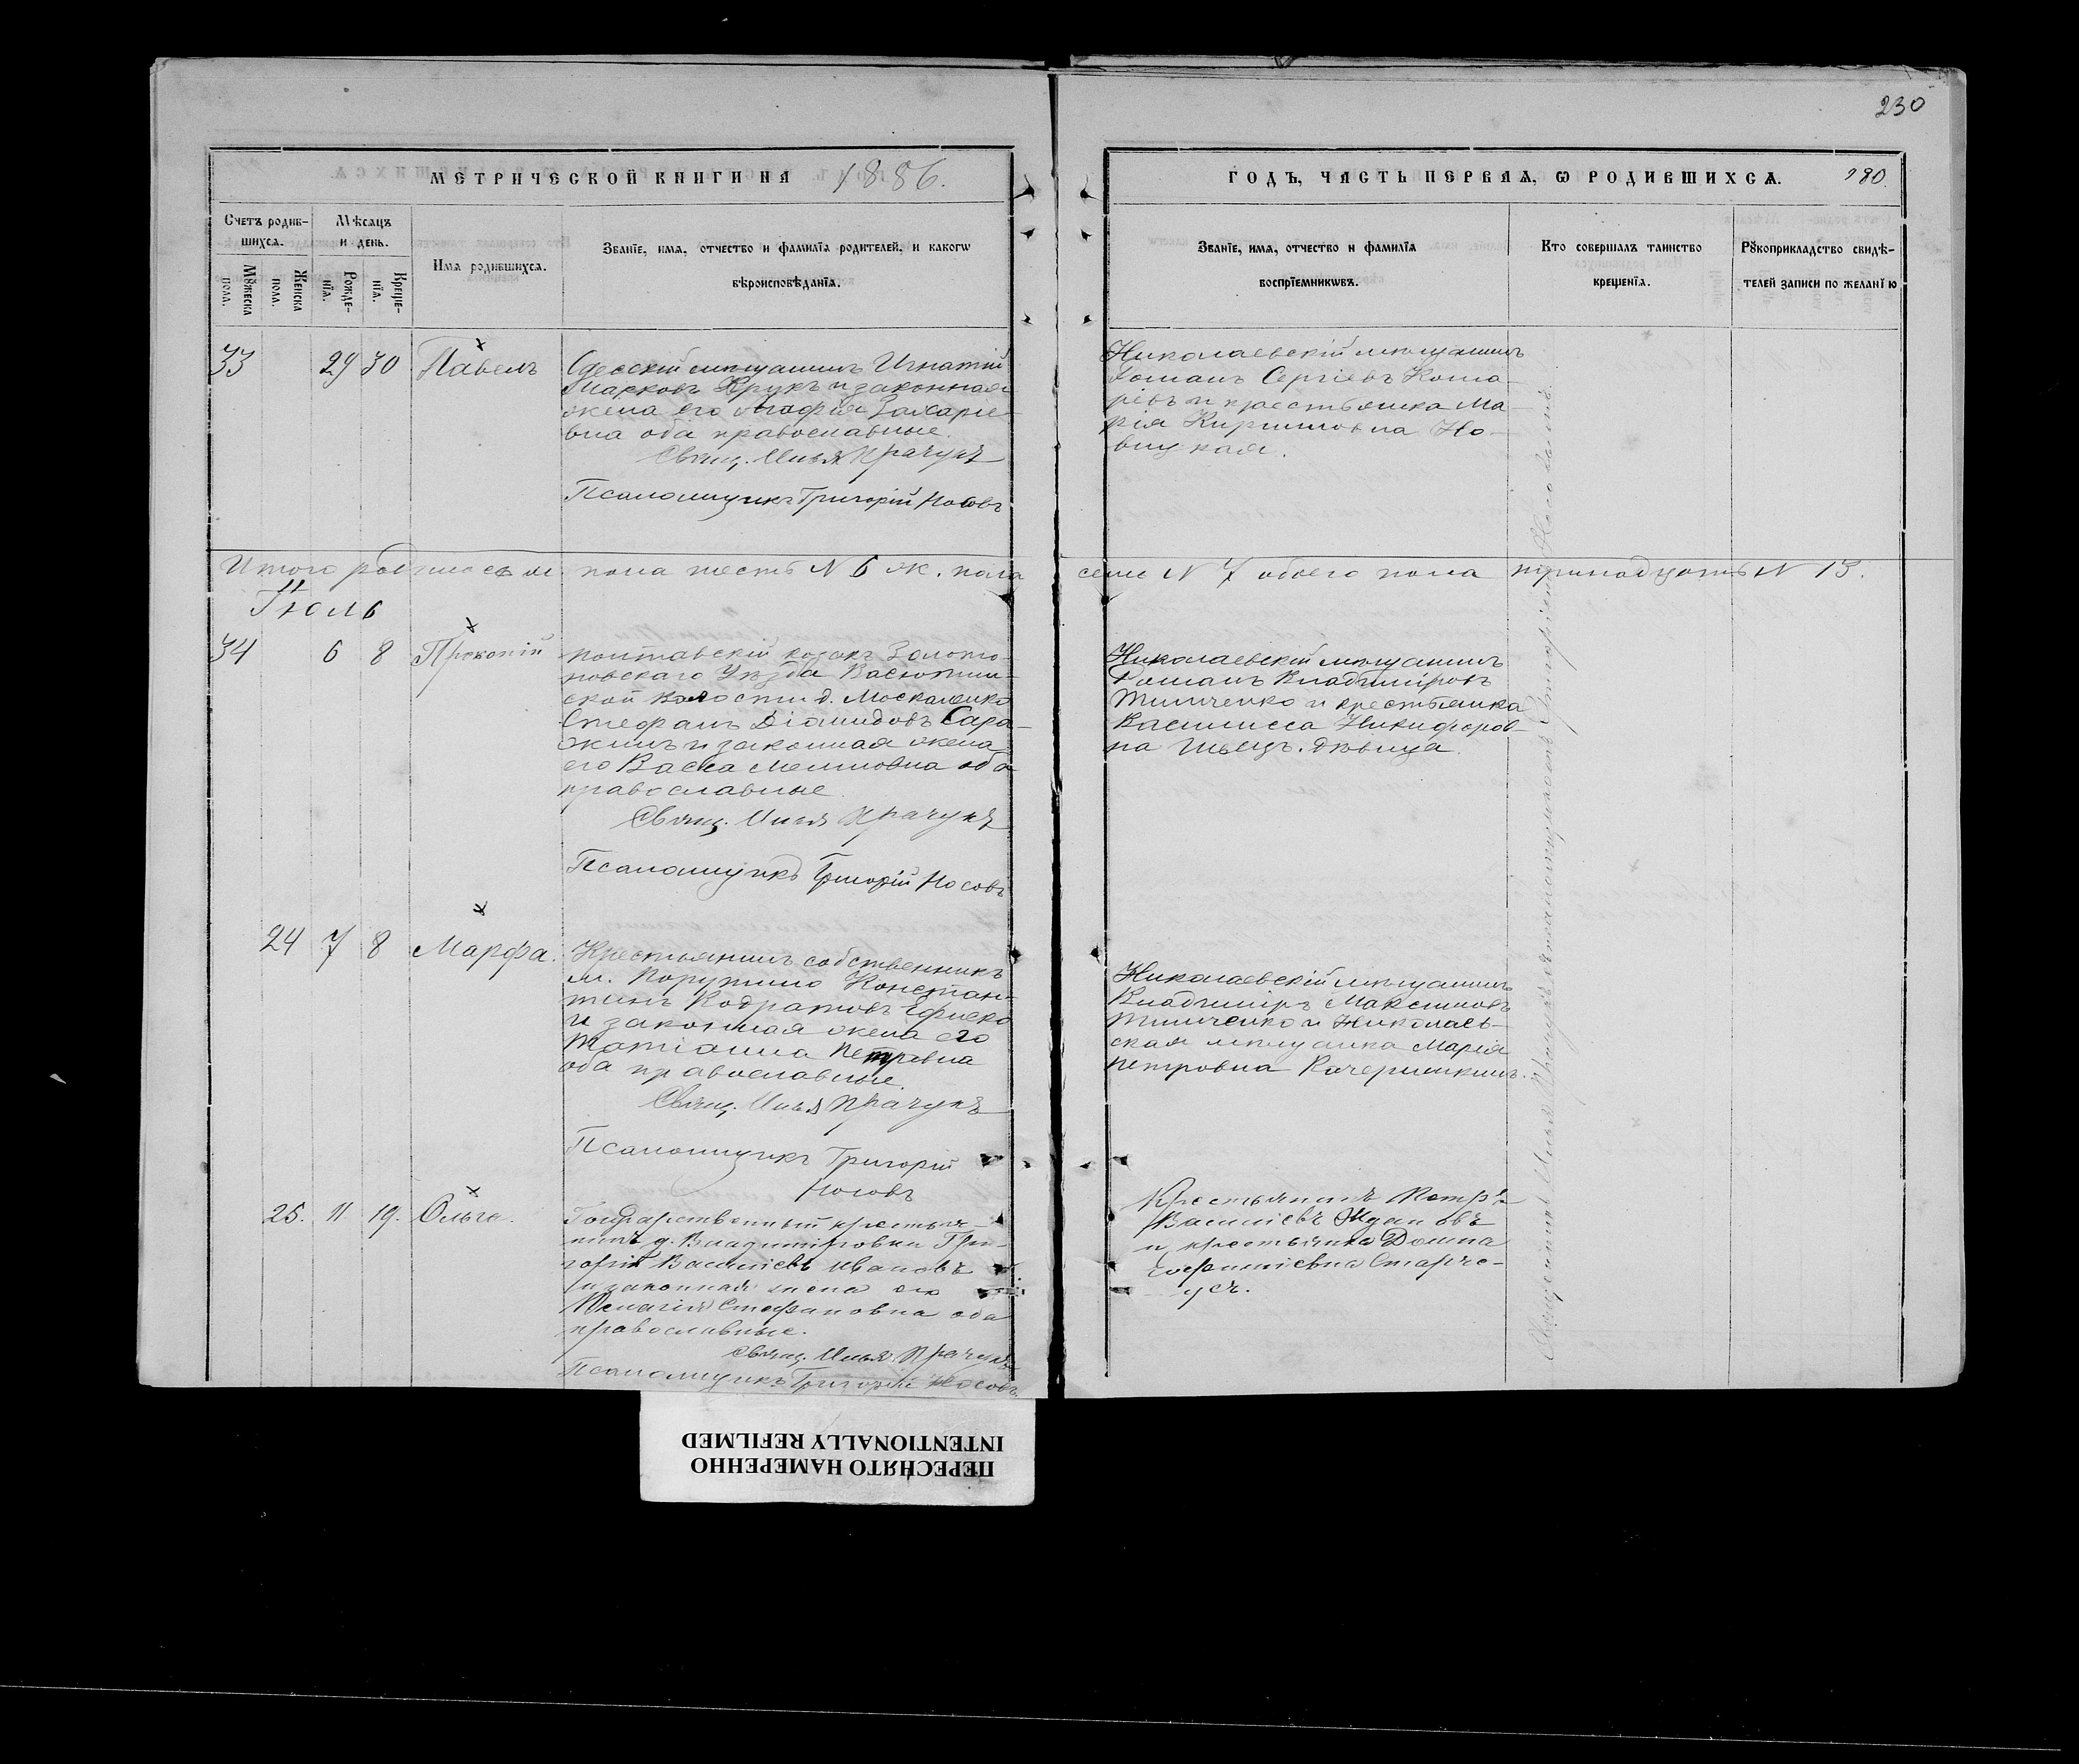 230
МЕТРИЧЕСКОЙ КНИГИ НА 1886.
ГОДЪ, ЧАСТЬ ПЕРВАЯ, Ѡ РОДИВШИХСѦ. 180.
Счетъ родив-
шихсѧ.
Мѣсѧцъ
и день.
Имѧ родившихсѧ.
Званїе, имѧ, отчество и фамилїѧ родителей, и какогѡ
вѣроисповѣданїѧ.
Мꙋжеска
пола.
Женска
пола.
Рожде-
нїѧ.
Креще-
нїѧ.
Званїе, имѧ, отчество и фамилїѧ
воспрїемникѡвъ.
Кто совершалъ таинство
крещенїѧ.
Рꙋкоприкладство свидѣ-
телей записи по желанїю
33 29 30 Павелъ
Одесскій мѣщанинъ Игнатій
Марковъ Крукъ и законная
жена его Агафія Захаріе-
вна оба православные.
Свящ. Илья Крачукъ
Псаломщикъ Григорій Носовъ
Николаевскій мѣщанинъ
Романъ Сергіевъ Кома-
ревъ и крестьянка Ма-
рія Кириловна Но-
вицкая.
Итого родилось м. пола шесть N 6 ж. пола семь N 7 обоего пола тринадцать N 13.
Іюль
34 6 8 Прокопій
полтавскій козакъ Золото-
новскаго Уѣзда Васютин-
ской волости д. Москаленко
Стефанъ Діомидовъ Сара-
жинъ и законная жена
его Васса оба
православные.
Свящ. Илья Крачукъ
Псаломщикъ Григорій Носовъ
Николаевскій мѣщанинъ
Романъ Владиміровъ
Тимченко и крестьянка
Василисса Никифоров-
на Швецъ. дѣвица.
24 7 8 Марфа.
Крестьянинъ собственникъ
м. Порутино Констан-
тинъ Кодратовъ
и законная жена его
Татіанна Петровна
оба православные.
Свящ. Илья Крачукъ
Псаломщикъ Григорій
Носовъ
Николаевскій мѣщанинъ
Владиміръ Максимовъ
Тимченко и Николаев-
ская мѣщанка Марія
Петровна
25. 11 19. Ольга.
Государственный крестья-
нинъ д. Владиміровки Гри-
горій Василіевъ Ивановъ
и законная жена его
Пелагія Стефановна оба
православные.
Свящ. Илья Крачукъ
Псаломщикъ Григорій Носовъ
Крестьянинъ Петръ
Василіевъ Ждановъ
и крестьянка Домна
Евфиміевна Старче-
усъ.
Священникъ Илья Крачукъ съ псаломщикомъ Григоріемъ Носовымъ.
ПЕРЕСНЯТО НАМЕРЕННО
INTENTIONALLY REFILMED